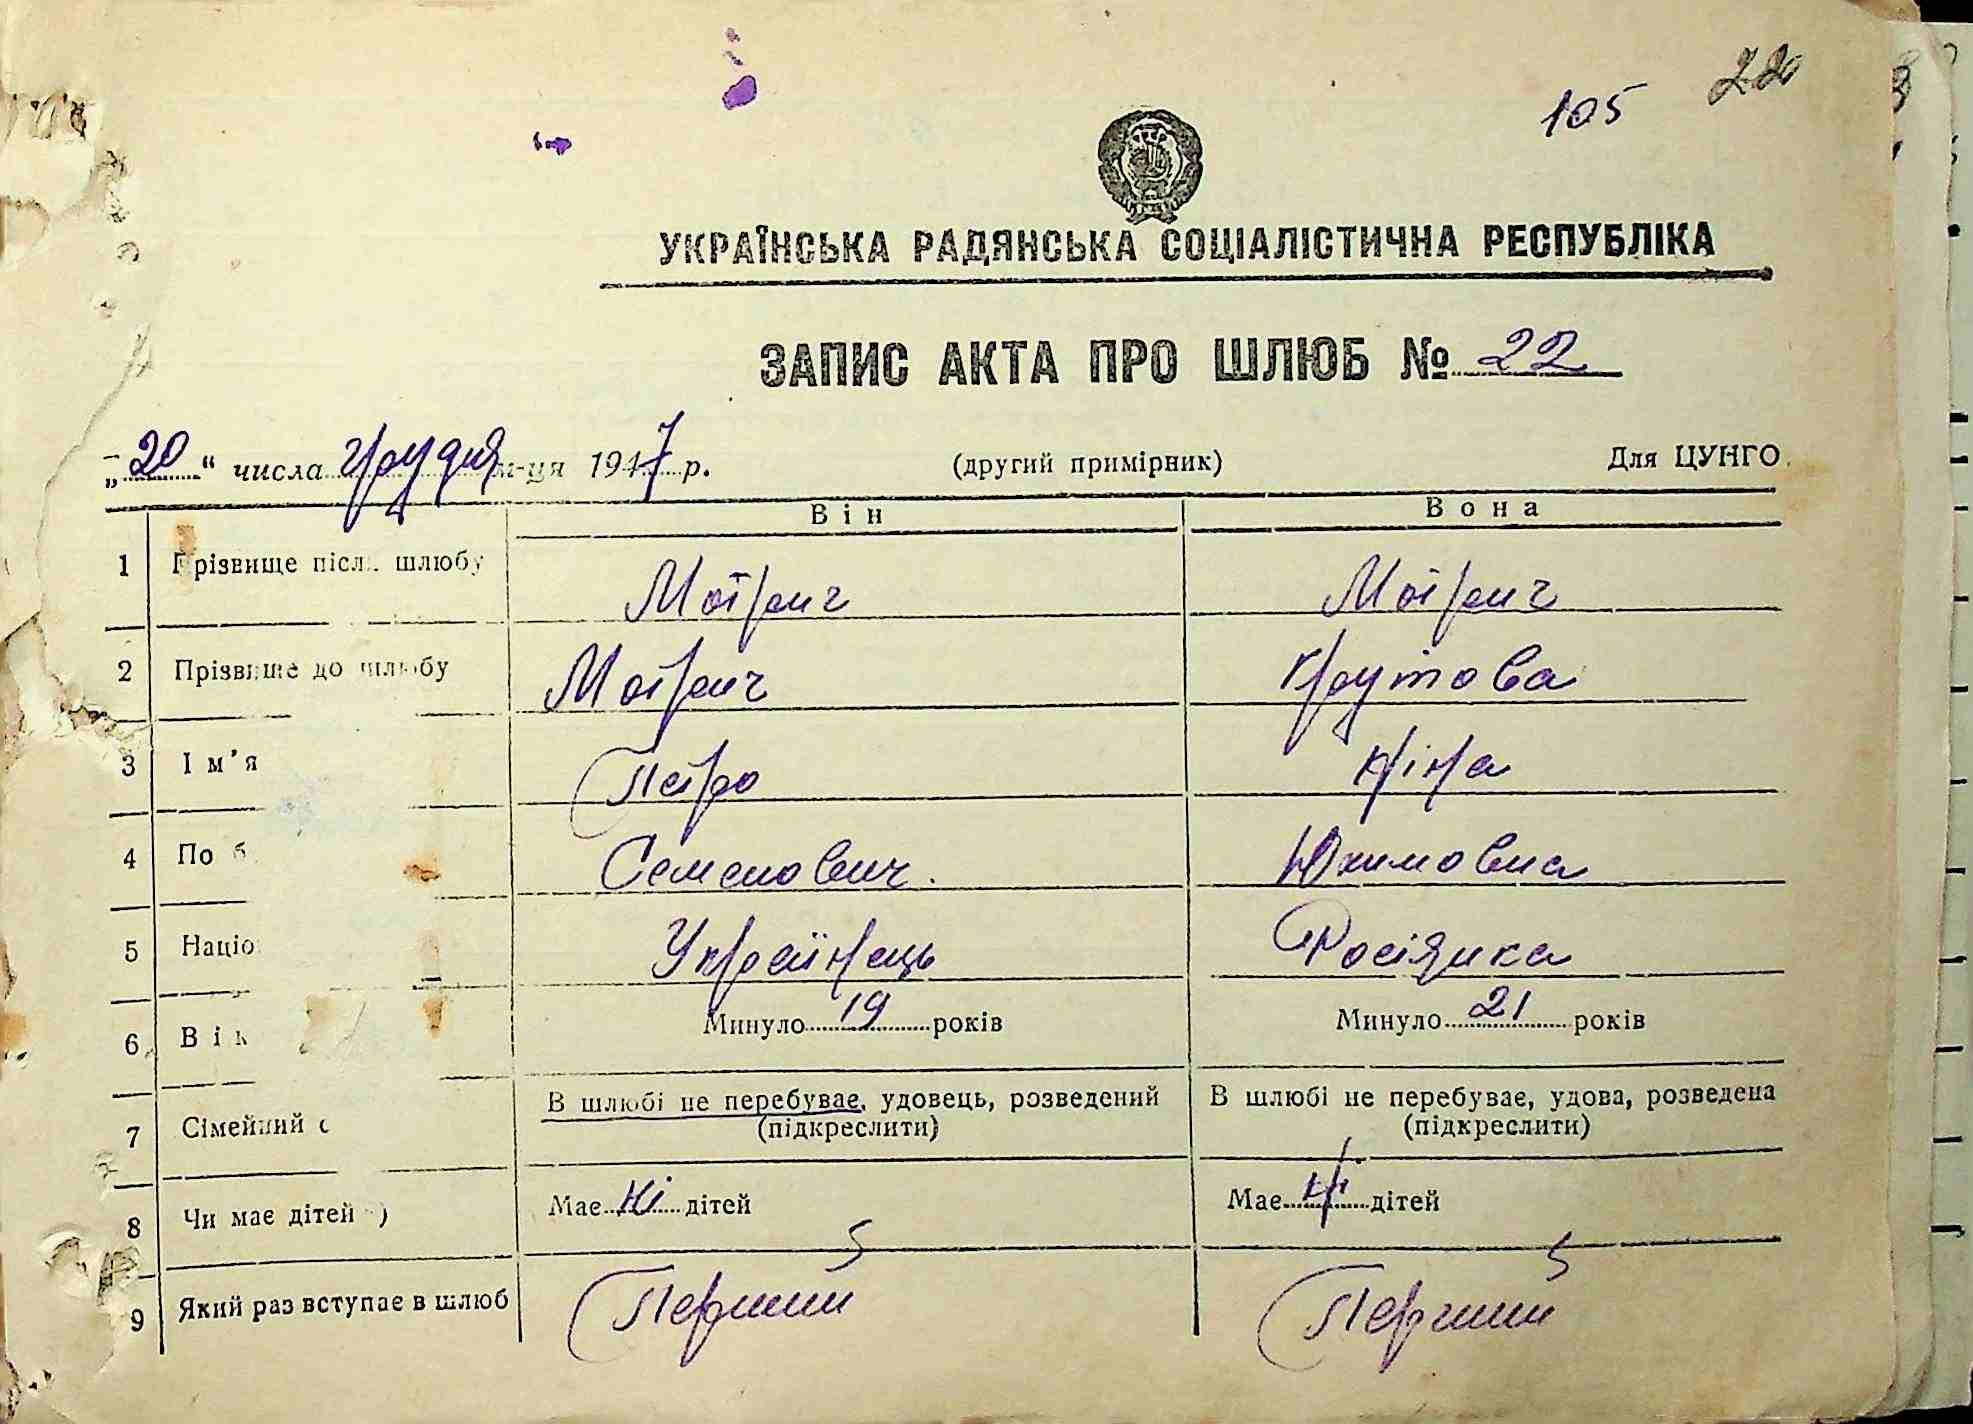 220
105
УКРАЇНСЬКА РАДЯНСЬКА СОЦІАЛІСТИЧНА РЕСПУБЛІКА
ЗАПИС АКТА ПРО ШЛЮБ № 22
„20“ числа грудня м-ця 1947 р. (другий примірник) Для ЦУНГО
Він Вона
1 Прізвище після шлюбу Мотрич Мотрич
2 Прізвище до шлюбу Мотрич Крутова
3 Ім’я Петро Ніна
4 По б Семенович. Юхимовна
5 Націо Українець Росіянка
6 Вік Минуло 19 років Минуло 21 років
7 Сімейний с В шлюбі не перебуває, удовець, розведений (підкреслити) В шлюбі не перебуває, удова, розведена (підкреслити)
8 Чи має дітей ) Має ні дітей Має ні дітей
9 Який раз вступає в шлюб Перший Перший